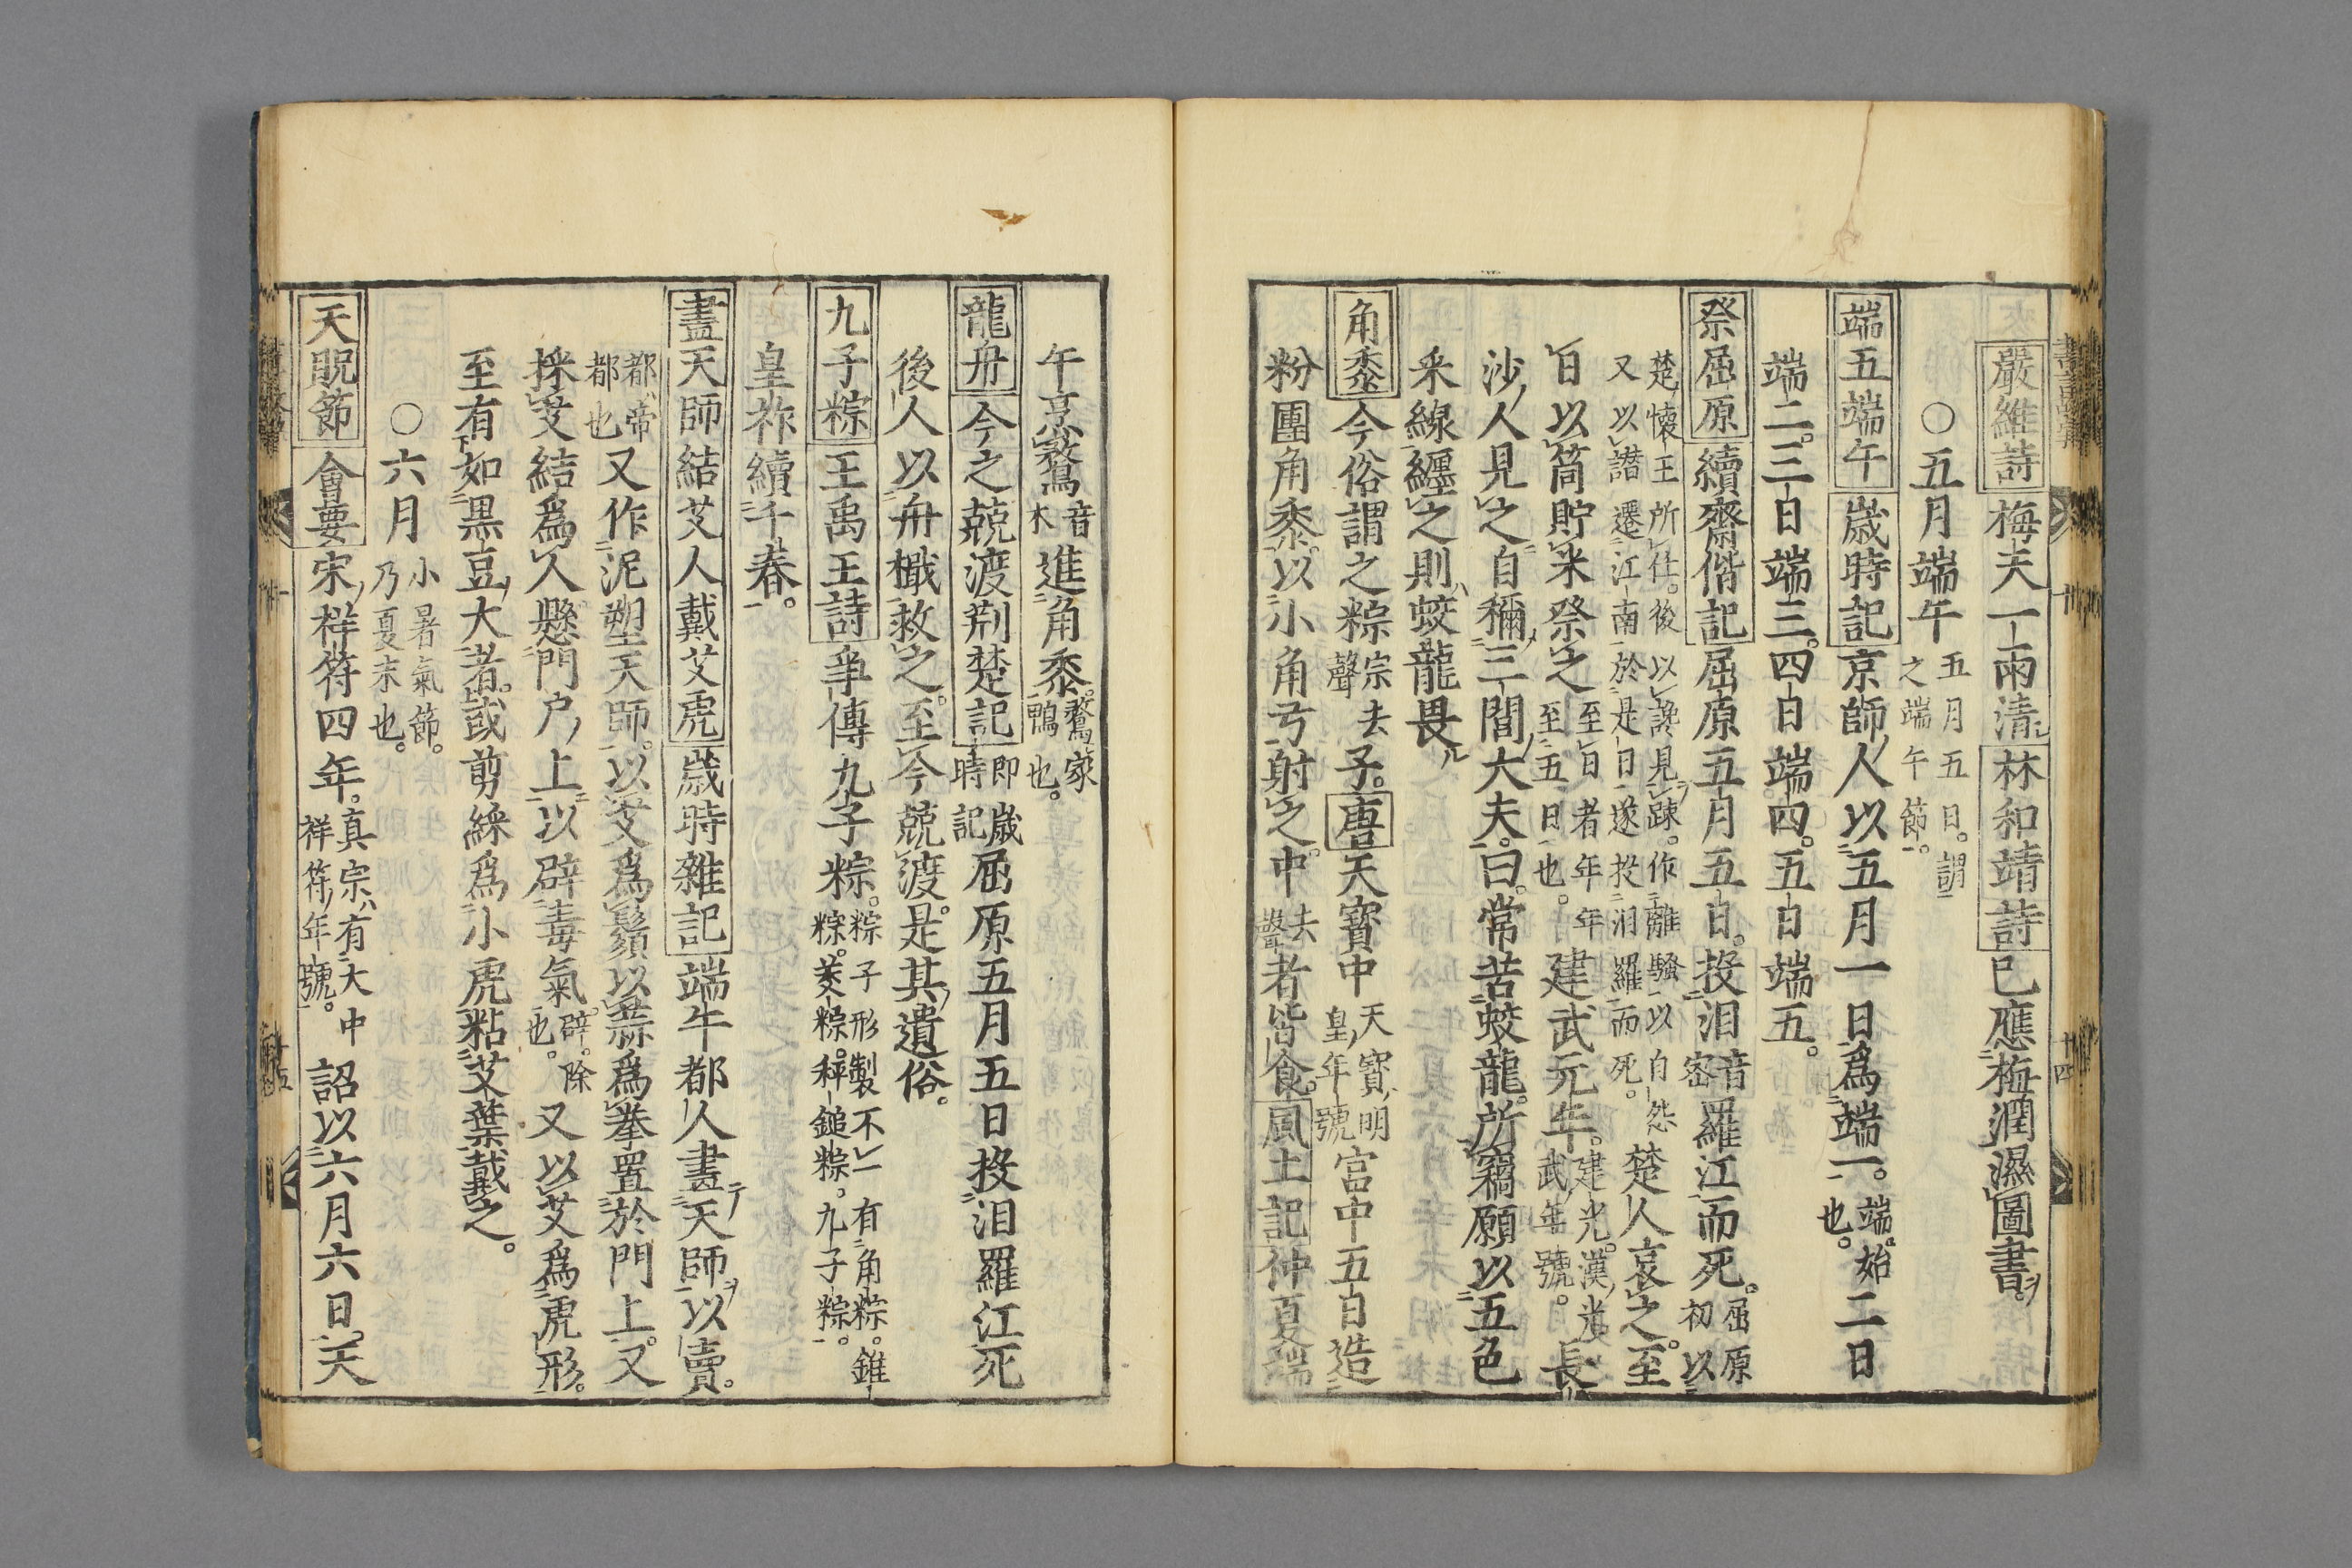 嚴維詩 梅夫一雨清 林和靖詩 已應梅潤濕圖書
○五月端午 五月五日謂之端午節
端五端午 歳時記 京師人以五月一日爲端一 端始也 二日
端二三日端三四日端四五日端五
祭屈原 續齋偕記 屈原五月五日投汨 音密 羅江而死 屈原初以
楚懷王所任後以讒見踈作離騷以自怨又以譛遷江南於是日遂投汨羅而死 楚人哀之至
日以筒貯米祭之 至日者年年至五日也 建武元年 建光漢光武年號 長
沙人見之自稱三閭大夫曰常苦蛟龍所竊願以五色
采線纒之則蛟龍畏
角黍 今俗謂之粽 宗去聲 子 唐 天寳中 天寳明皇年號 宮中五日造
粉團角黍以小角弓射之中 去聲 者皆食 風土記 仲夏端
午烹鶩 音木 進角黍 鶩家鴨也
龍舟 今之競渡 荆楚記 即歳時記 屈原五月五日投汨羅江死
後人以舟檝救之至今競渡是其遺俗
九子粽 王禹玉詩 爭傳九子粽 粽子形製不一有角粽錐粽菱粽秤鎚粽九子粽
皇祚續千春
畫天師結艾人戴艾虎 歳時雜記 端午都人畫天師以賣
都帝都也 又作泥塑天師以艾爲鬚以蒜爲拳置於門上又
採艾結爲人懸門户上以辟毒氣 辟除也 又以艾爲虎形
至有如黒豆大者或剪綵爲小虎粘艾葉戴之
○六月 小暑氣節乃夏末也
天貺節 會要 宋祥符四年 真宗有大中祥符年號 詔以六月六日天